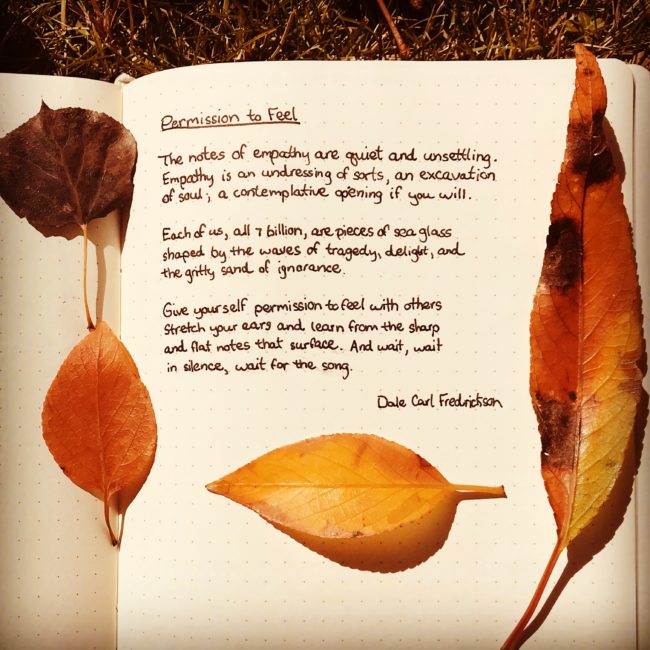 Permission to Feel
The notes of empathy are quiet and unsettling.
Empathy is an undressing of sorts, an excavation
of soul; a contemplative opening if you will.
Each of us, all 7 billion, are pieces of sea glass
shaped by the waves of tragedy, delight, and
the gritty sand of ignorance.
Give yourself permission to feel with others
Stretch your ears and learn from the sharp
and flat notes that surface. And wait, wait
in silence, wait for the song.
Dale Carl Fredrickson